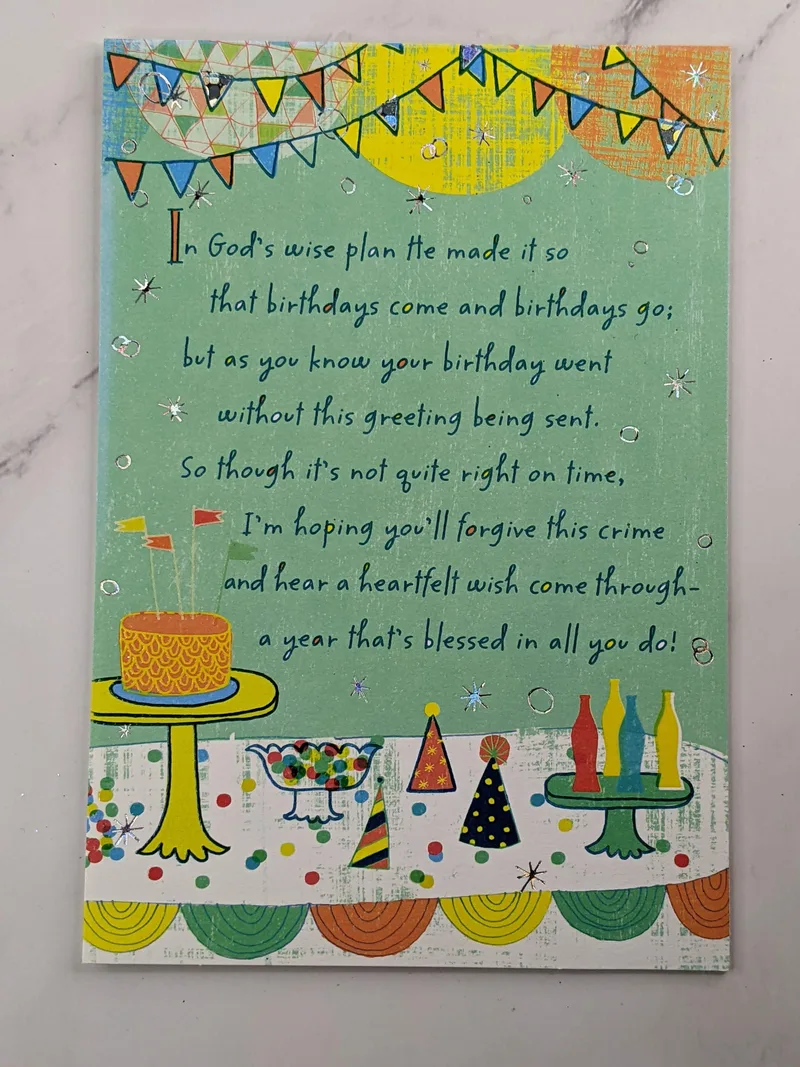 In God's wise plan He made it so
that birthdays come and birthdays go;
but as you know your birthday went
without this greeting being sent.
So though it's not quite right on time,
I'm hoping you'll forgive this crime
and hear a heartfelt wish come through-
a year that's blessed in all you do!